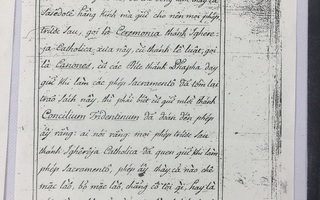 Sacerdotê hằng kính mà giữ cho nên mọi phép
trước sau, gọi là Ceremonia thánh Igherê-
ja Catholica, xưa nay, cũ thánh lề luật, gọi
là Canones, cũ các
khi làm các phép Sacramentô đã tóm lại
trao sách nầy, thì phải biết cũ giữ mlời thánh
Concilium Tridentinum đã đoán đến phép
ấy rằng: ai nói rằng: mọi phép trước sau
thánh Ighêrêja Catholica đã quen giữ khi làm
phép Sacramentô, phép ấy thầy cả nào chê
mặc lào, bỏ mặc lào, chẳng có tội gì, hay là